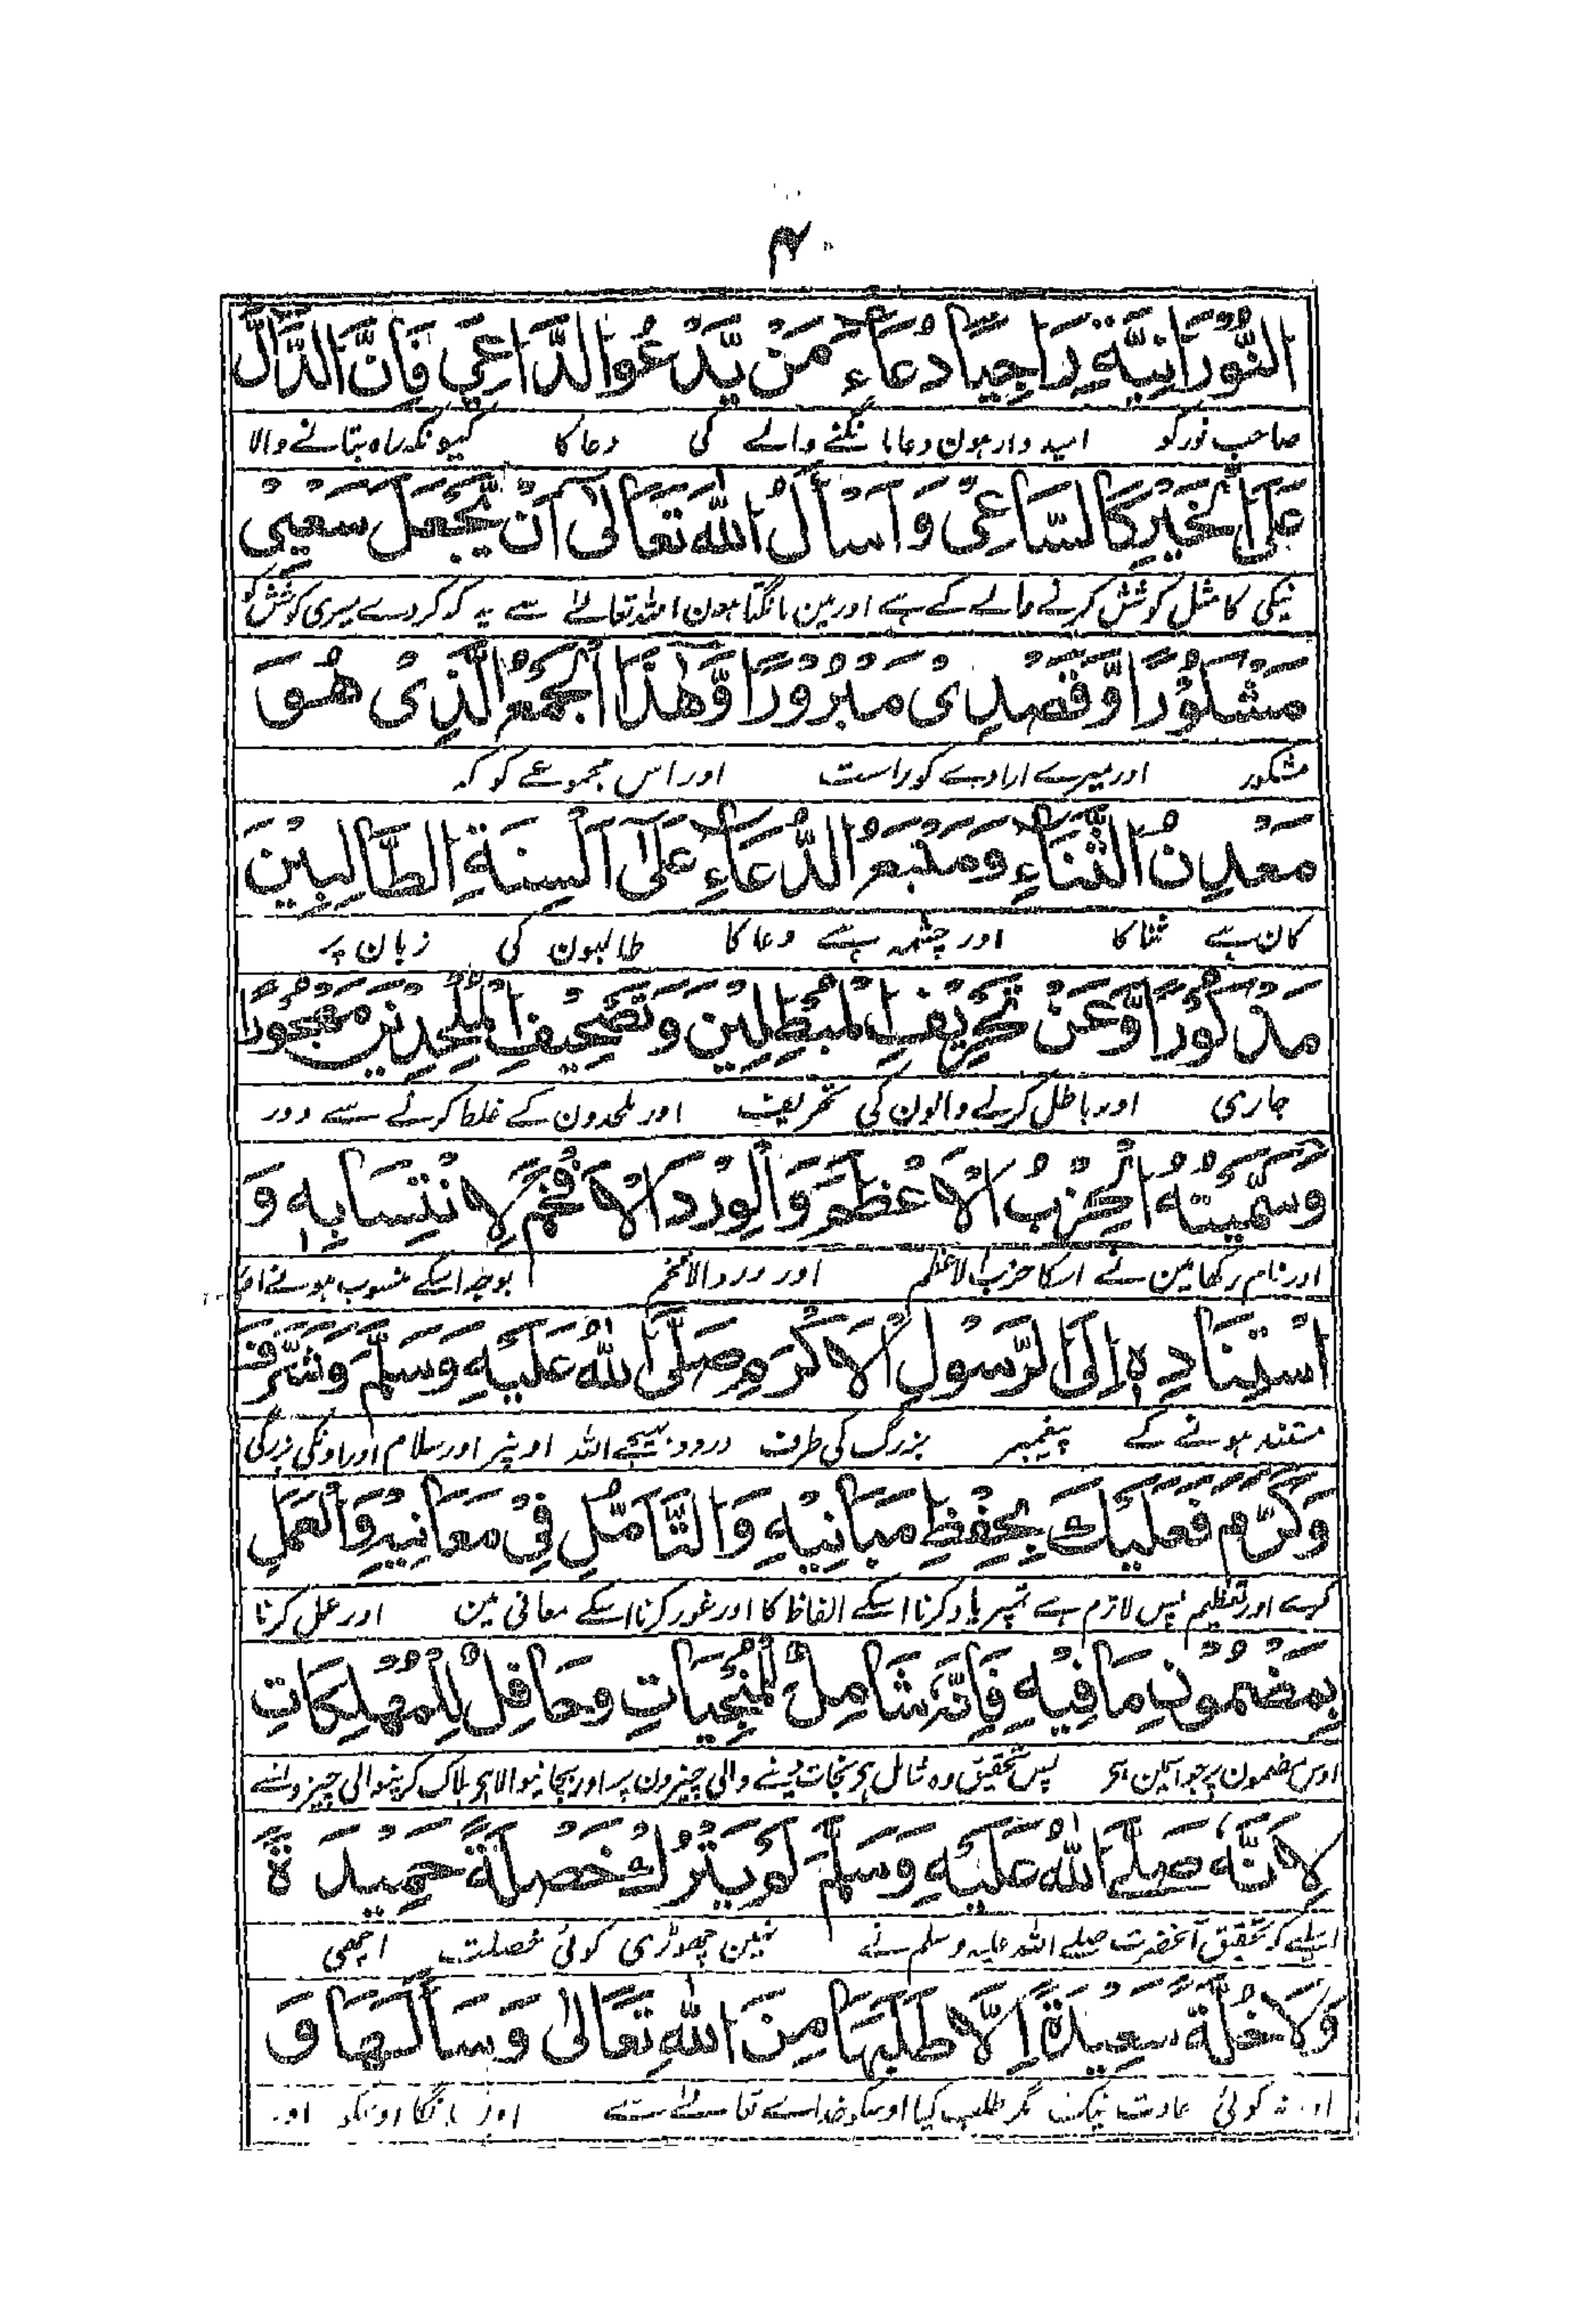 ۴
النُّوْرَانِيَّةِ رَاجِيًا دُعَاءَ مَنْ يَّدْعُوا الدَّاعِيَ فَاِنَّ الدَّالَّ
صاحب نور کو امیدوار ہون دعا مانگنے والے کی دعا کا کیونکہ راہ بتانے والا
عَلَى الْخَيْرِ كَالسَّاعِيْ وَاَسْأَلُ اللهَ تَعَالٰى اَنْ يَّجْعَلَ سَعْيِيْ
نیکی کا مثل کوشش کرنے والے کے ہے اور مین مانگتا ہون اللہ تعالے سے یہ کہ کردے میری کوشش کو
مَشْكُوْرًا وَّقَصْدِيْ مَبْرُوْرًا وَّهٰذَا الْجَمْعَ الَّذِيْ هُوَ
مشکور اور میرے ارادے کو راست اور اس مجموعے کو کہ
مَعْدِنُ الثَّنَاءِ وَمَنْبَعُ الدُّعَاءِ عَلٰى اَلْسِنَةِ الطَّالِبِيْنَ
کان ہے ثنا کا اور چشمہ ہے دعا کا طالبون کی زبان پر
مَذْكُوْرًا وَّعَنْ تَحْرِيْفِ الْمُبْطِلِيْنَ وَتَصْحِيْفِ الْمُلْحِدِيْنَ مَهْجُوْرًا
جاری اور باطل کرنے والون کی تحریف اور ملحدون کے غلط کرنے سے دور
وَسَمَّيْتُهُ الْحِزْبَ الْاَعْظَمَ وَالْوِرْدَ الْاَفْخَمَ لِانْتِسَابِهٖ وَ
اور نام رکھا مین نے اسکا حزب الاعظم اور ورد الافخم بوجہ اسکے منسوب ہونے اور
اسْتِنَادِهٖ اِلَى الرَّسُوْلِ الْاَكْرَمِ صَلَّى اللهُ عَلَيْهِ وَسَلَّمَ وَشَرَّفَ
مستند ہونے کے پیغمبر بزرگ کی طرف درود بھیجے اللہ اونپر اور سلام اور اونکی بزرگی
وَكَرَّمَ فَعَلَيْكَ بِحِفْظِ مَبَانِيْهِ وَالتَّأَمُّلِ فِيْ مَعَانِيْهِ وَالْعَمَلِ
کرے اور تعظیم پس لازم ہے تمپر یاد کرنا اسکے الفاظ کا اور غور کرنا اسکے معانی مین اور عمل کرنا
بِمَضْمُوْنِ مَا فِيْهِ فَاِنَّهٗ شَامِلٌ لِلْمُنْجِيَاتِ وَحَافِلٌ لِلْمُهْلِكَاتِ
اوس مضمون پر جو اسمین ہی پس تحقیق وہ شامل ہی نجات دینے والی چیزون پر اور بچانیوالا ہی ہلاک کرنیوالی چیزونسے
لِاَنَّهٗ صَلَّى اللهُ عَلَيْهِ وَسَلَّمَ لَمْ يَتْرُكْ خَصْلَةً حَمِيْدَةً
اسلیے کہ تحقیق آنحضرت صلے اللہ علیہ وسلم نے نہین چھوڑی کوئی خصلت اچھی
وَلَا خُلَّةً سَعِيْدَةً اِلَّا طَلَبَهَا مِنَ اللهِ تَعَالٰى وَسَأَلَهَا وَ
اور نہ کوئی عادت نیک مگر طلب کیا اوسکو خداے تعالے سے اور مانگا اوسکو اور